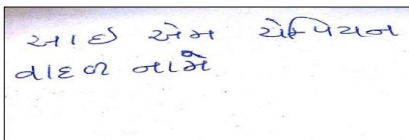 આઇ એમ ચેમ્પિયન
વાદળ નામે